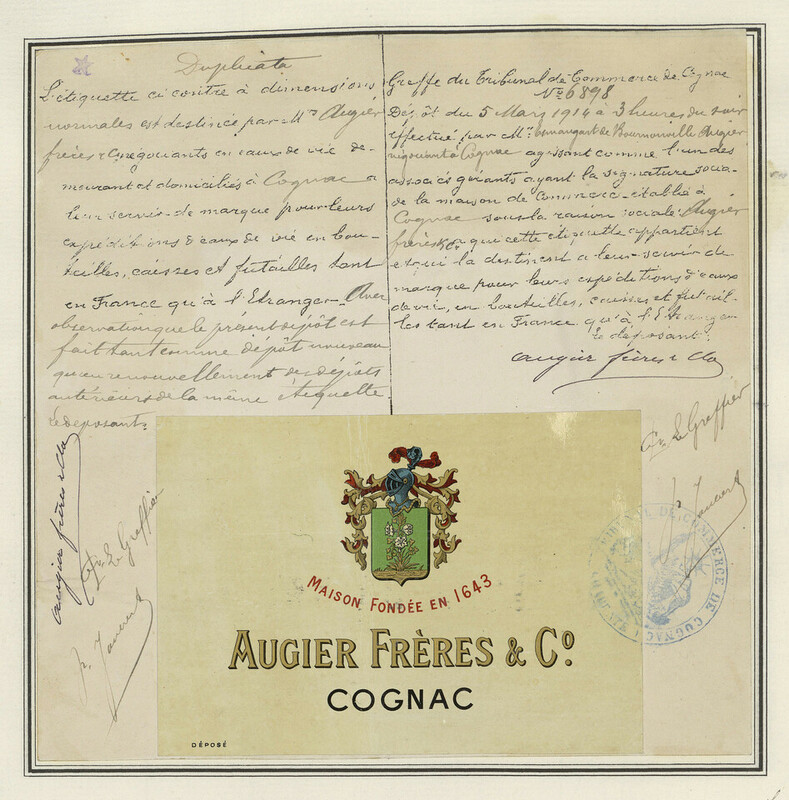 Duplicata
L'étiquette ci contre à dimensions
normales est destinée par Mrs Augier
frères & Co négociants en eaux de vie de-
meurant et domiciliés à Cognac a
leur servir de marque pour leurs
expéditions d'eaux de vie en bou-
teilles, caisses et futailles tant
en France qu'à l'Etranger. Avec
observation que le présent dépôt est
fait tant comme dépôt nouveau
qu'en renouvellement des dépôts
antérieurs de la même étiquette.
Le déposant:
Augier frères & Co
Le Greffier
Greffe du Tribunal de Commerce de Cognac
No 6898
Dépôt du 5 Mars 1914 à 3 heures du soir
effectué par Mr de Bournonville Augier
négociant à Cognac agissant comme l'un des
associés gérants ayant la signature socia-
de la maison de Commerce établie à
Cognac sous la raison sociale Augier
frères & Co a qui cette étiquette appartient
et qui la destinent a leur servir de
marque pour leurs expéditions d'eaux
de vie, en bouteilles, caisses et futail-
les tant en France qu'à l'Etranger
Le déposant.
Augier frères & Co
Le Greffier
MAISON FONDÉE EN 1643
AUGIER FRÈRES & Co.
COGNAC
DÉPOSÉ
DE COMMERCE DE COGNAC